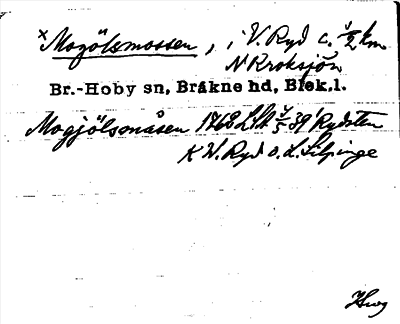 × Mogölsmossen, i V. Ryd c. 1/2 km
N Kroksjön
Br.-Hoby sn, Bräkne hd, Blek.l.
Mogjölsmåsen 1768 LSA 39 Rydsten
K V. Ryd o. L. Silpinge